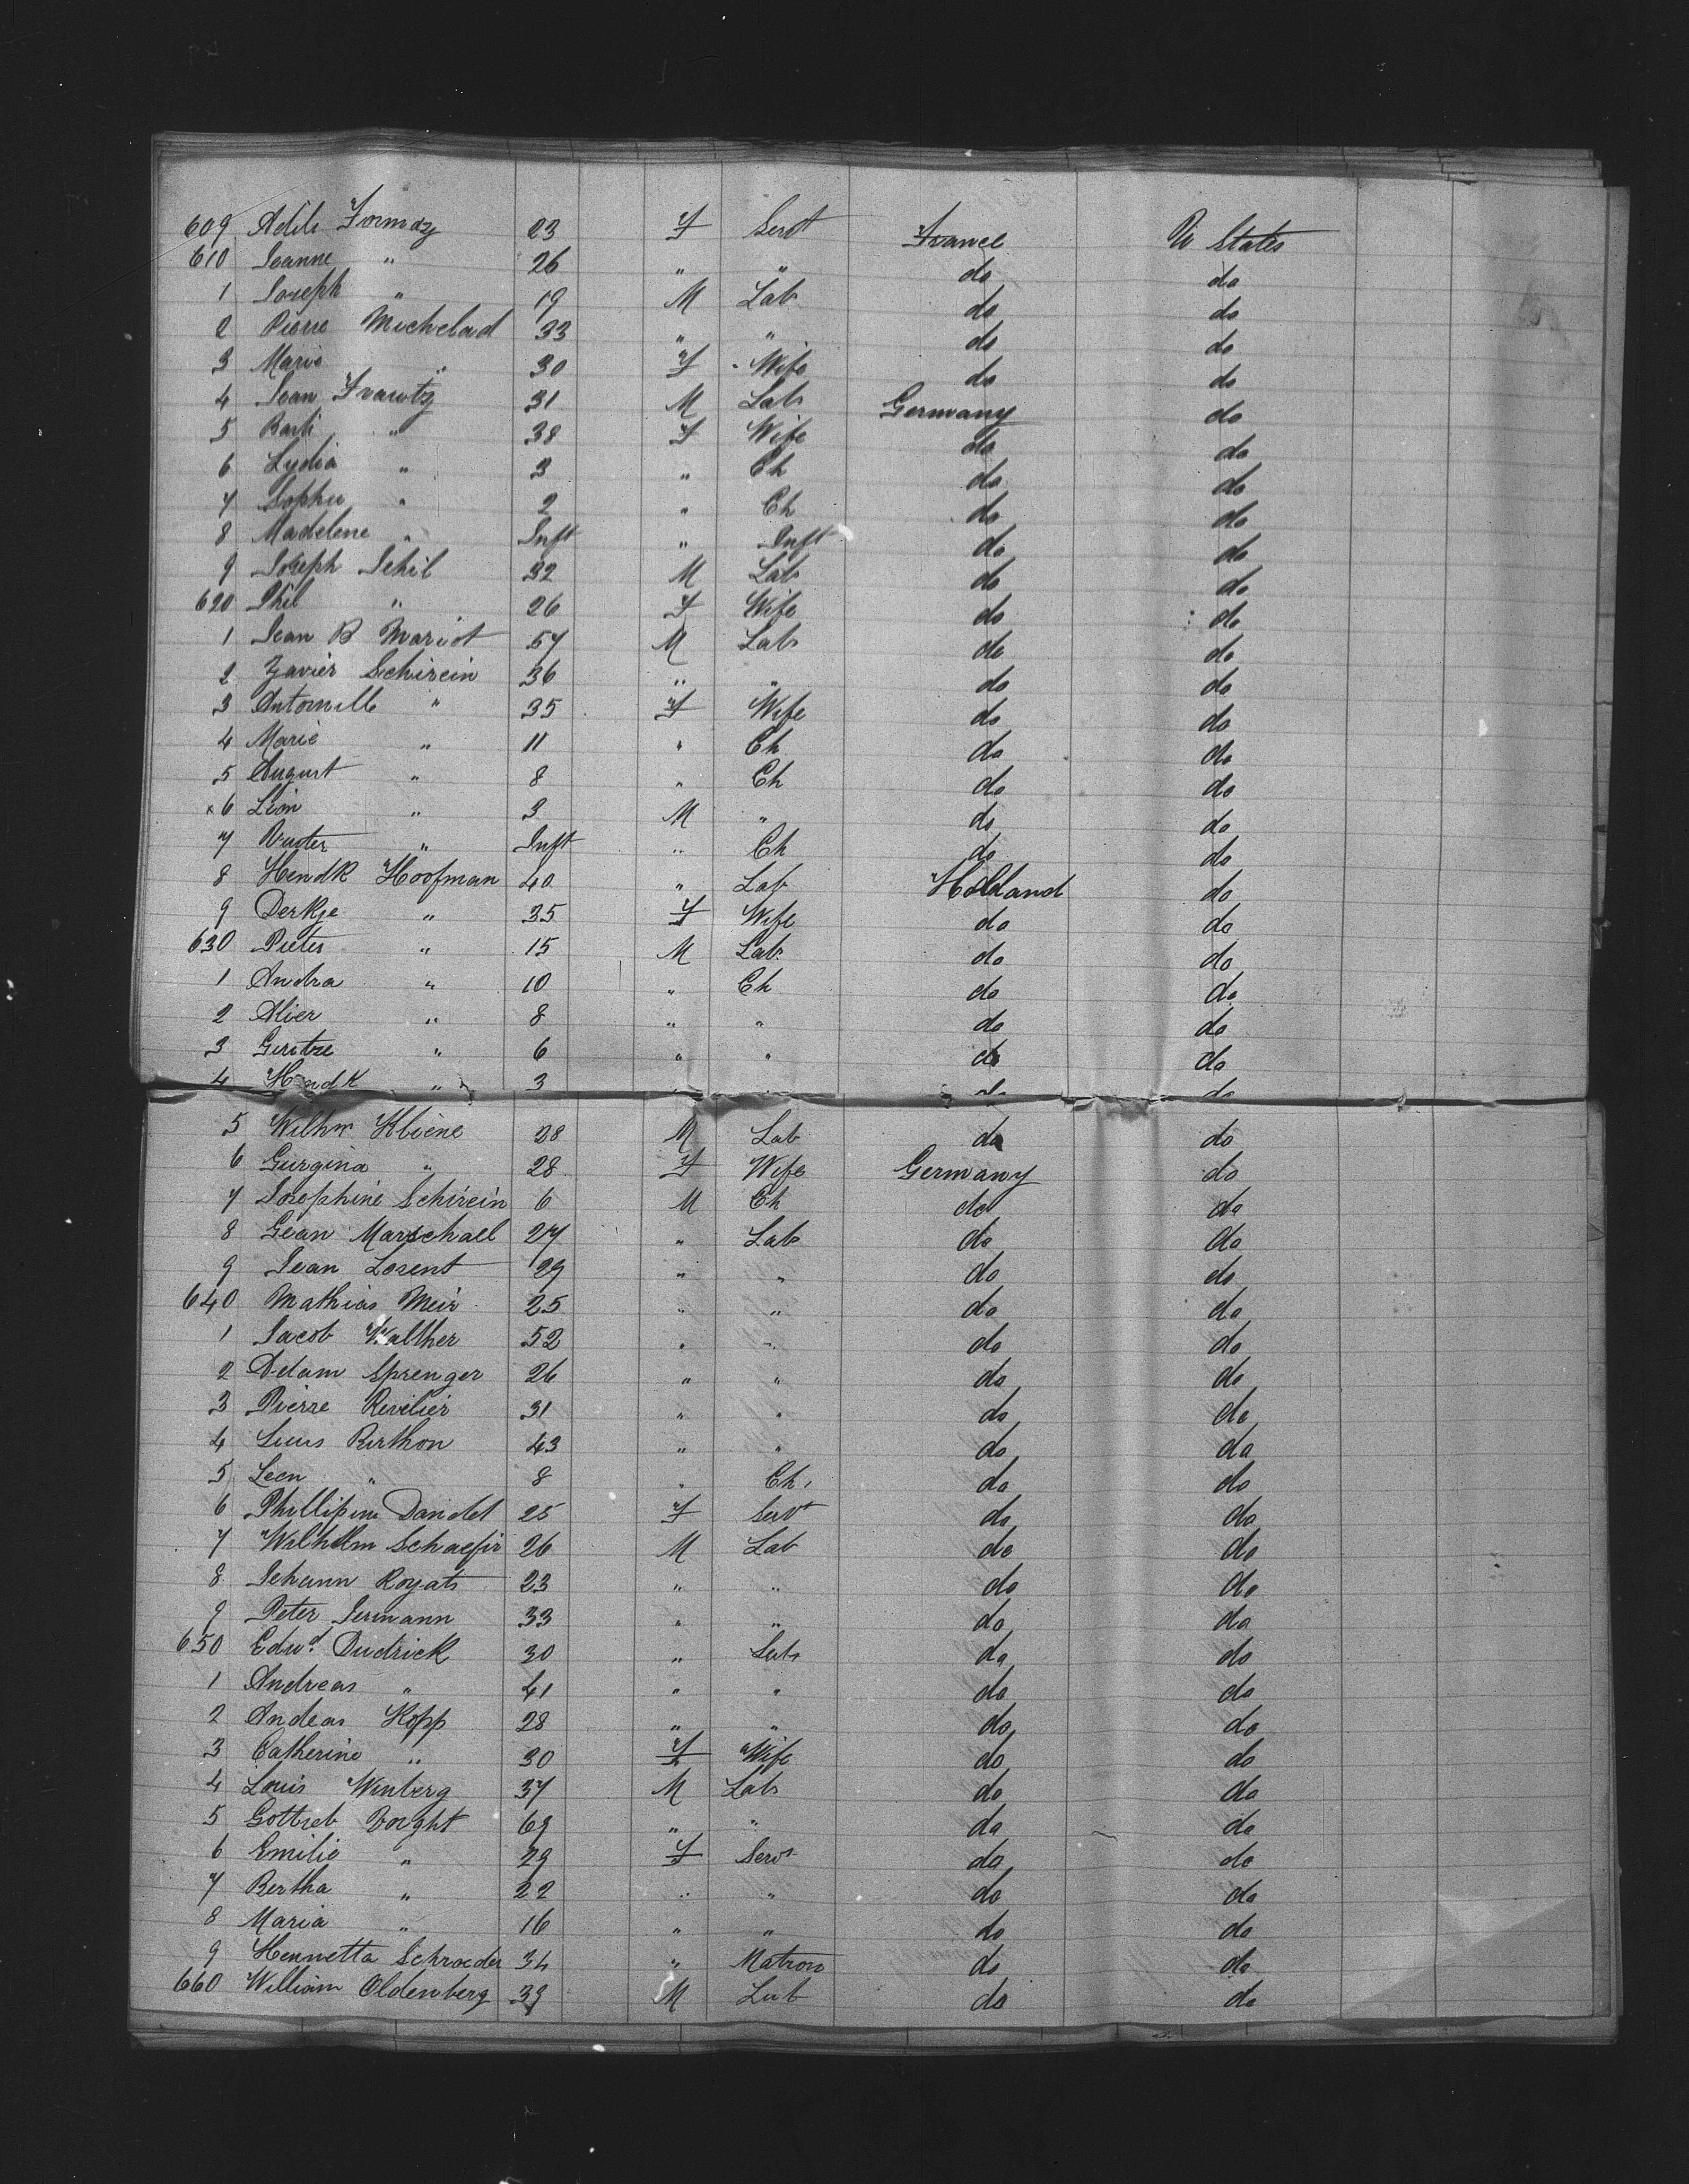 609 Adili Formaz 23 F Servt France U States
610 Jeanne " 26 " " do do
1 Joseph " 19 M Lab do do
2 Pierre Michelad 33 " " do do
3 Marie " 30 F Wife do do
4 Jean Frantz 31 M Lab Germany do
5 Barb " 38 F Wife do do
6 Lydia " 3 " Ch do do
7 Sophie " 2 " Ch do do
8 Madelene " Inft " Inft do do
9 Joseph Schil 32 M Lab do do
620 Phil " 26 F Wife do do
1 Jean B Mariot 57 M Lab do do
2 Zavier Schirein 36 " " do do
3 Antoinille " 35 F Wife do do
4 Marie " 11 " Ch do do
5 August " 8 " Ch do do
x 6 Lion " 3 M " do do
7 " Inft " Ch do do
8 Hendk Hoofman 40 " Lab Holland do
9 Derkje " 35 F Wife do do
630 Pieter " 15 M Lab do do
1 Andra " 10 " Ch do do
2 Alier " 8 " " do do
3 Geritze " 6 " " do do
4 Hendk " 3 " " do do
5 Wilhm Kliene 28 M Lab do do
6 Gurgina " 28 F Wife Germany do
7 Josephine Schirein 6 M Ch do do
8 Gean Marschael 27 " Lab do do
9 Jean Lorent 29 " " do do
640 Mathias Meir 25 " " do do
1 Jacob Walther 52 " " do do
2 Adam Sprenger 26 " " do do
3 Pierre Rivilier 31 " " do do
4 Luis Berthon 43 " " do do
5 Leon " 8 " Ch do do
6 Phillipine Dandel 25 F Servt do do
7 Wilhelm Schaefir 26 M Lab do do
8 Johann Royats 23 " " do do
9 Peter Jermann 33 " " do do
650 Edwd. Dudrick 30 " Lab do do
1 Andreas " 41 " " do do
2 Andeas Kopp 28 " " do do
3 Catherine " 30 F Wife do do
4 Louis Winberg 37 M Lab do do
5 Gottieb Voight 69 " " do do
6 Emilie " 29 F Servt do do
7 Bertha " 22 " " do do
8 Maria " 16 " " do do
9 Hennetta Schroeder 34 " Matron do do
660 William Oldenberg 39 M Lab do do